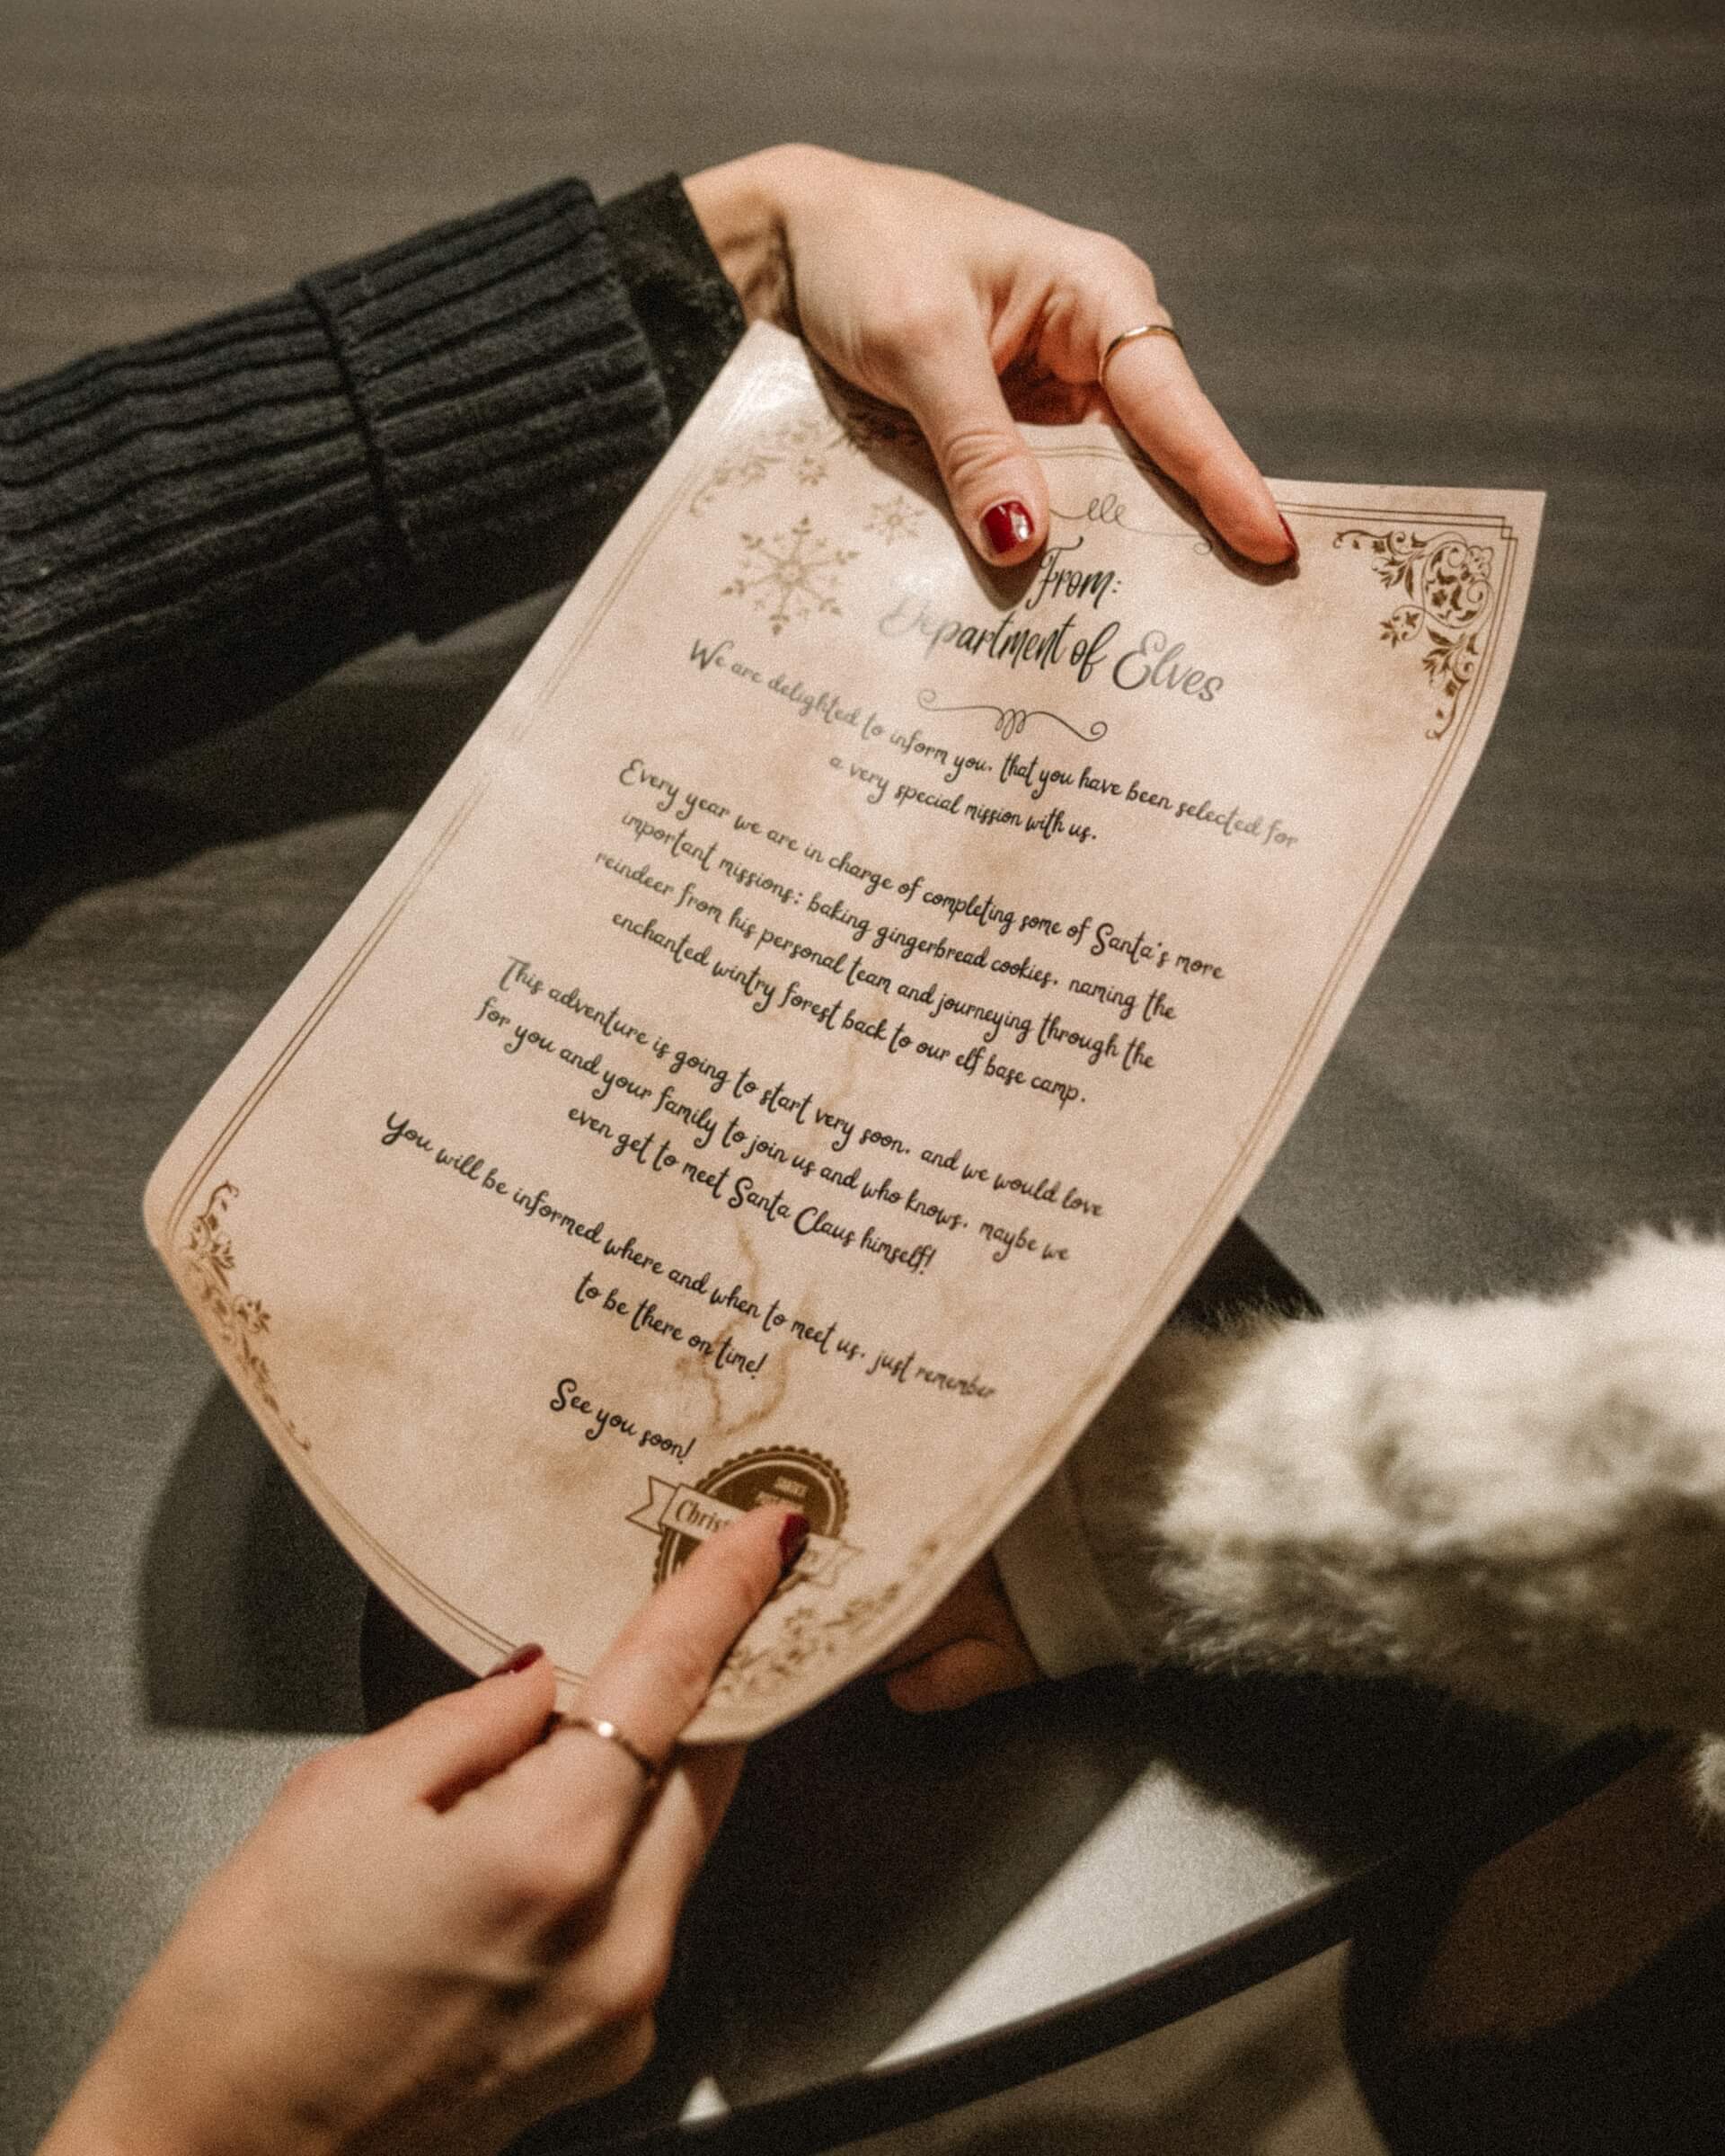 From:
Department of Elves
We are delighted to inform you, that you have been selected for
a very special mission with us.
Every year we are in charge of completing some of Santa's more
important missions: baking gingerbread cookies, naming the
reindeer from his personal team and journeying through the
enchanted wintry forest back to our elf base camp.
This adventure is going to start very soon, and we would love
for you and your family to join us and who knows, maybe we
even get to meet Santa Claus himself!
You will be informed where and when to meet us, just remember
to be there on time!
See you soon!